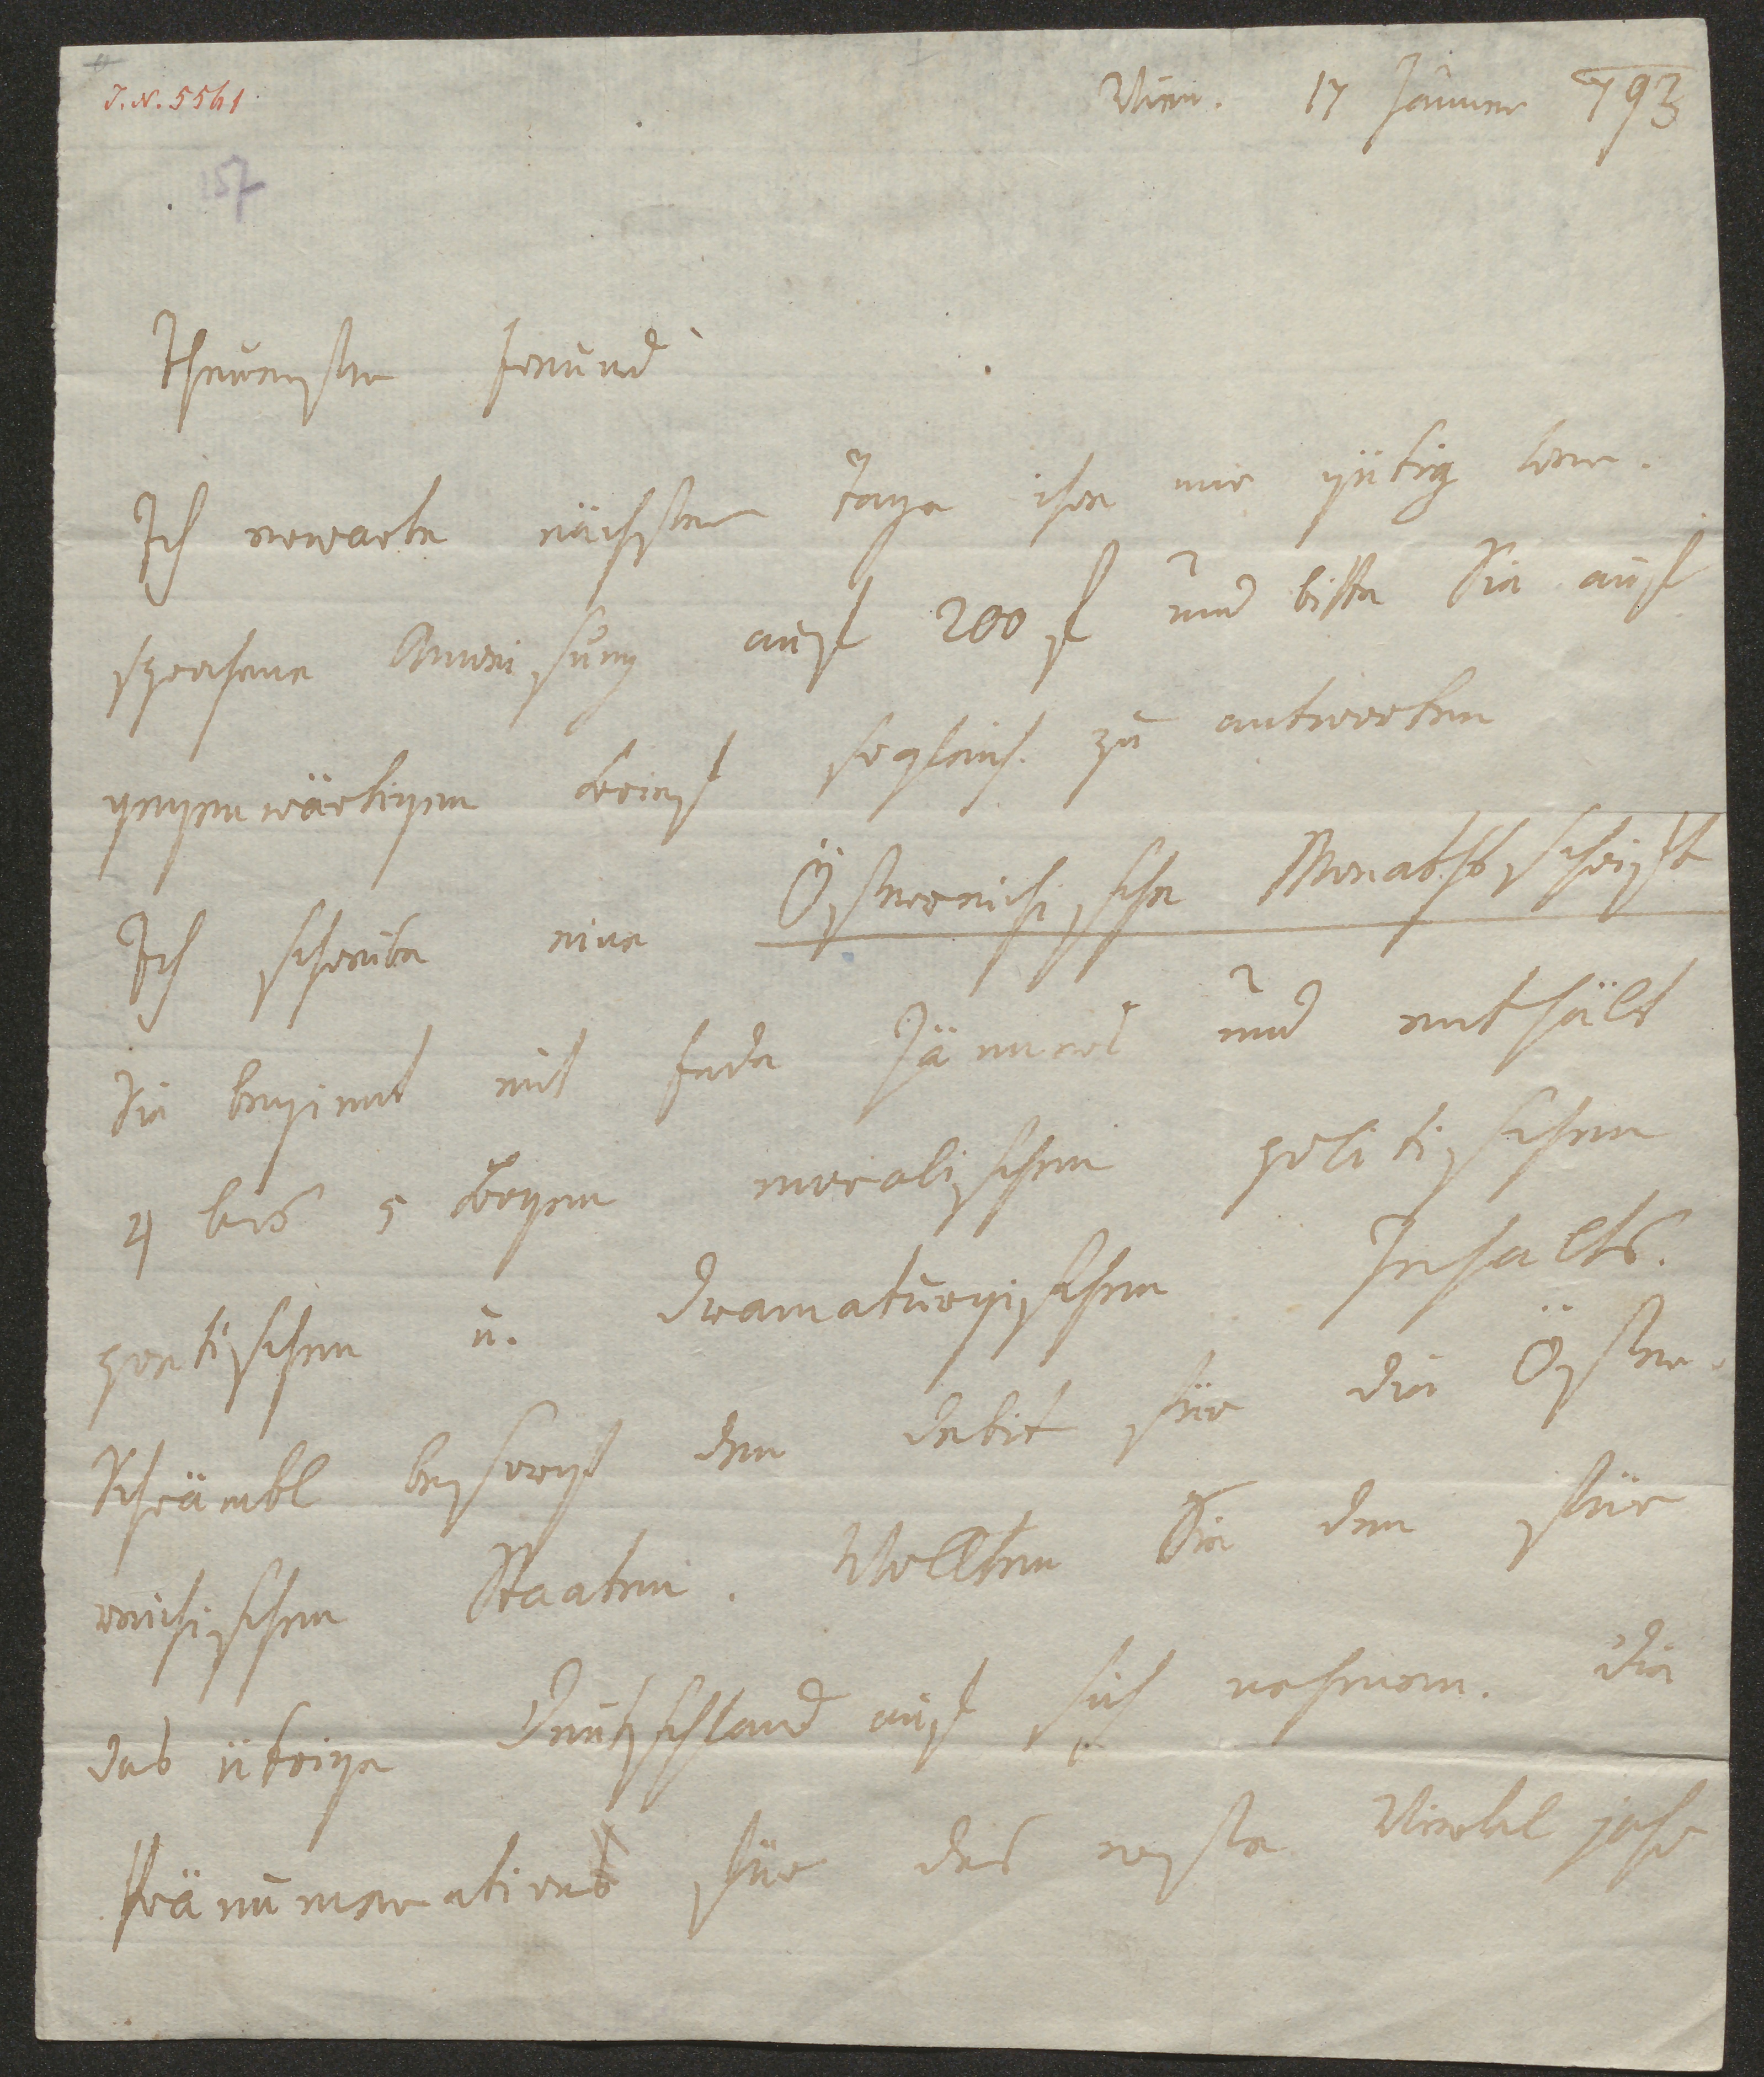 J. N. 5561
Wien. 17 Jänner 793
157
Theuerster Freund
Ich erwarte nächster Tage ihre mir gütig ver-
sprochene Anweisung auf 200 f und bitte Sie auf
gegenwärtigen Brief sogleich zu antworten
Ich schreibe eine Österreichische Monathsschrift
Sie beginnt mit Ende Jänners und enthält
4 bis 5 Bogen moralischen politischen
poetischen u. dramaturgischen Inhalts.
Schrämbl besorgt den debit für die Öster-
reichischen Staaten. Wollten Sie den für
das übrige Deutschland auf sich nehmen. Die
Pränumeration für das erste Viertel jahr